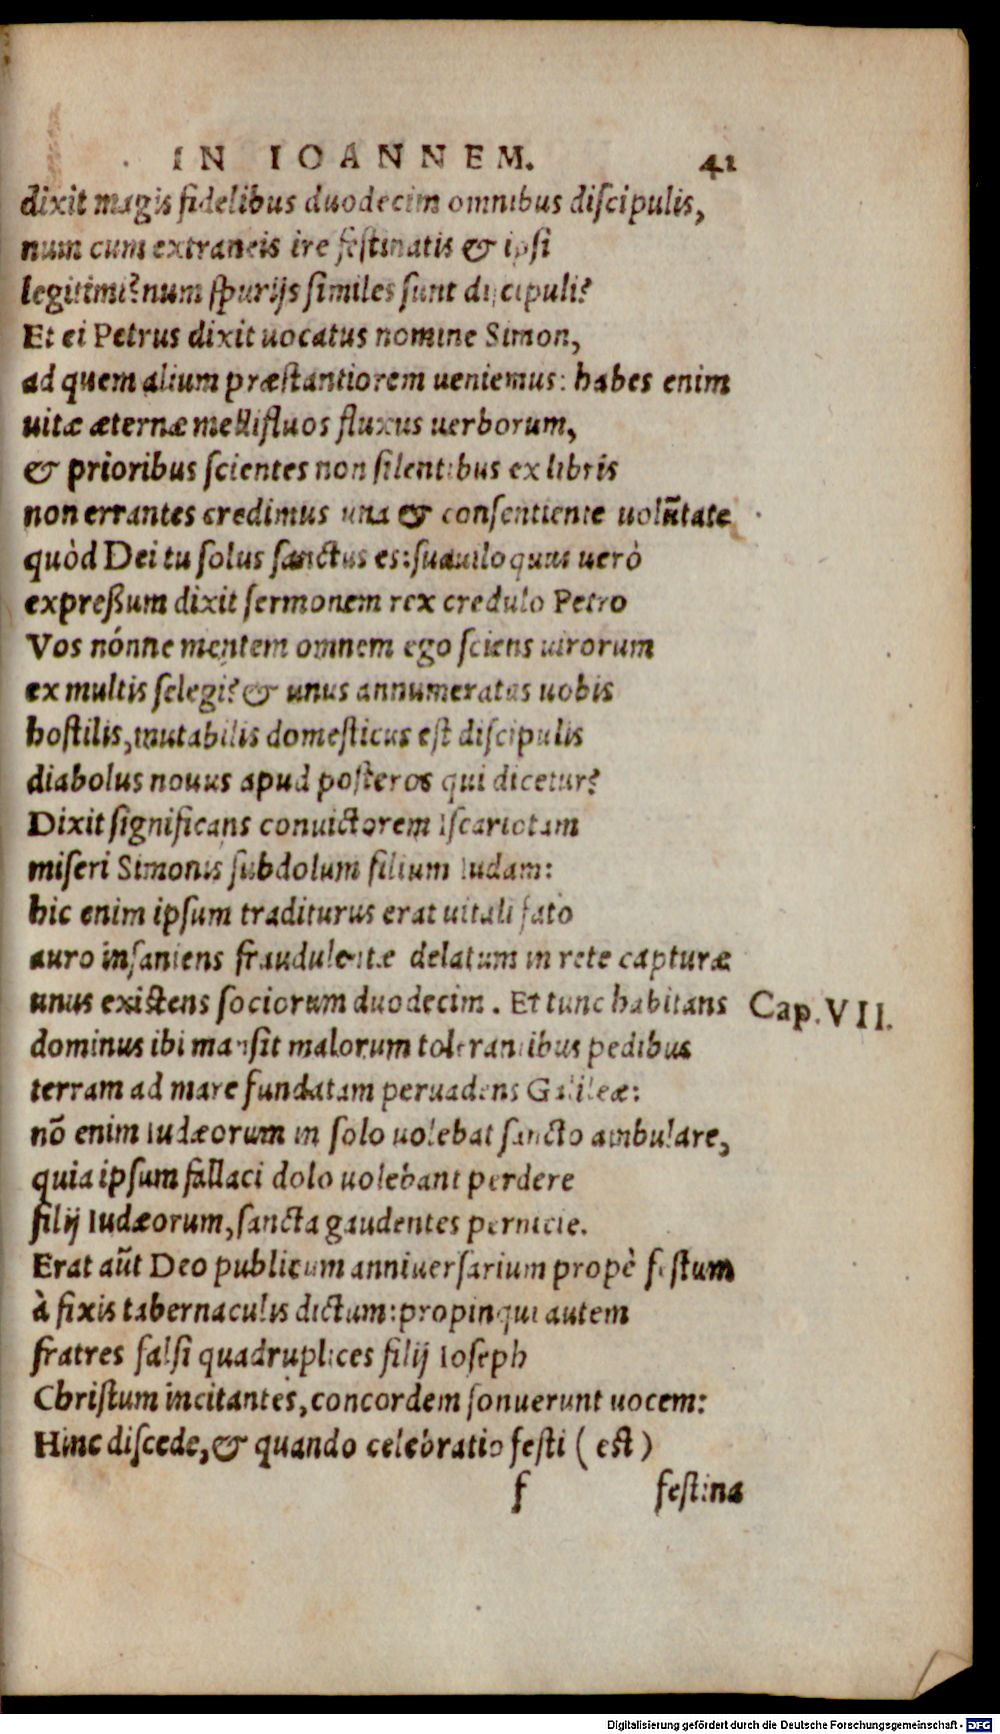 IN IOANNEM. 41
dixit magis fidelibus duodecim omnibus diſcipulis,
num cum extraneis ire feſtinatis & ipſi
legitimi? num ſpurijs ſimiles ſunt diſcipuli?
Et ei Petrus dixit uocatus nomine Simon,
ad quem alium præſtantiorem ueniemus: habes enim
uitæ æternæ mellifluos fluxus uerborum,
& prioribus ſcientes non ſilentibus ex libris
non errantes credimus una & conſentiente uolũtate
quòd Dei tu ſolus ſanctus es: ſuauiloquus uerò
expreßum dixit ſermonem rex credulo Petro
Vos nónne mentem omnem ego ſciens uirorum
ex multis ſelegi? & unus annumeratus uobis
hoſtilis, mutabilis domeſticus eſt diſcipulis
diabolus nouus apud poſteros qui dicetur?
Dixit ſignificans conuictorem Iſcariotam
miſeri Simonis ſubdolum filium Iudam:
hic enim ipſum traditurus erat uitali fato
auro inſaniens fraudulentæ delatum in rete capturæ
unus exiſtens ſociorum duodecim. Et tunc habitans Cap. VII.
dominus ibi manſit malorum tolerantibus pedibus
terram ad mare fundatam peruadens Galileæ:
nō enim Iudæorum in ſolo uolebat ſancto ambulare,
quia ipſum fallaci dolo uolebant perdere
filij Iudæorum, ſancta gaudentes pernicie.
Erat aũt Deo publicum anniuerſarium propè feſtum
à fixis tabernaculis dictum: propinqui autem
fratres falſi quadruplices filij Ioſeph
Chriſtum incitantes, concordem ſonuerunt uocem:
Hinc diſcede, & quando celebratio feſti ( eſt )
f feſtina
Digitalisierung gefördert durch die Deutsche Forschungsgemeinschaft - DFG